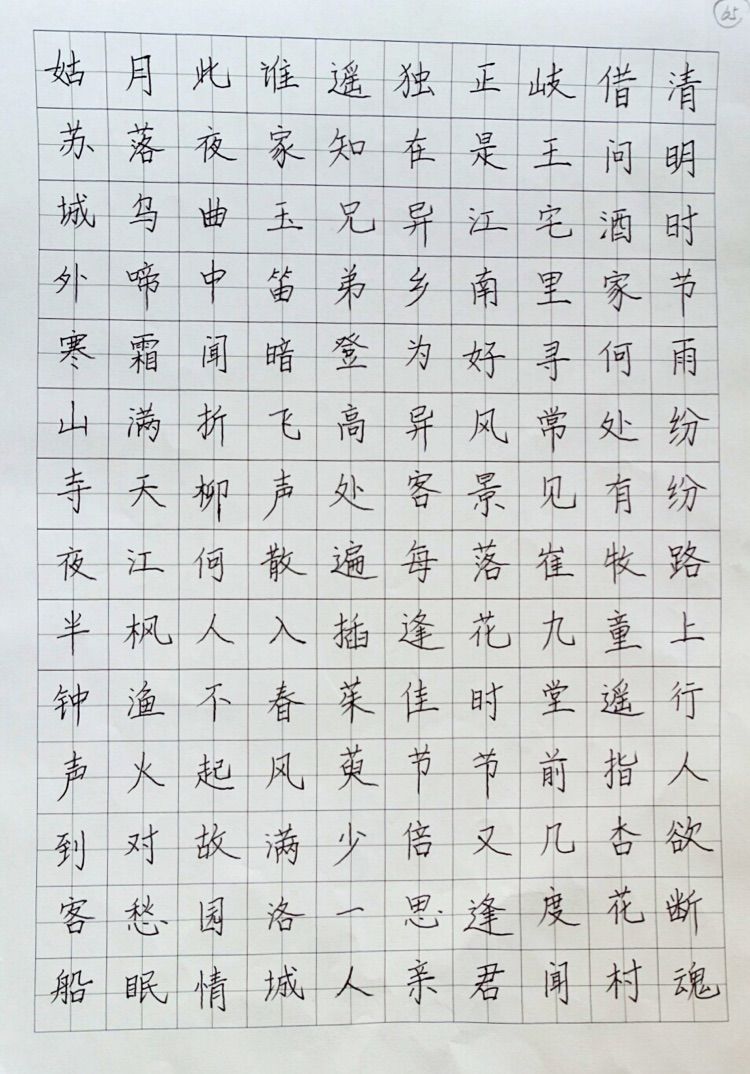 65
清明时节雨纷纷路上行人欲断魂
借问酒家何处有牧童遥指杏花村
岐王宅里寻常见崔九堂前几度闻
正是江南好风景落花时节又逢君
独在异乡为异客每逢佳节倍思亲
遥知兄弟登高处遍插茱萸少一人
谁家玉笛暗飞声散入春风满洛城
此夜曲中闻折柳何人不起故园情
月落乌啼霜满天江枫渔火对愁眠
姑苏城外寒山寺夜半钟声到客船